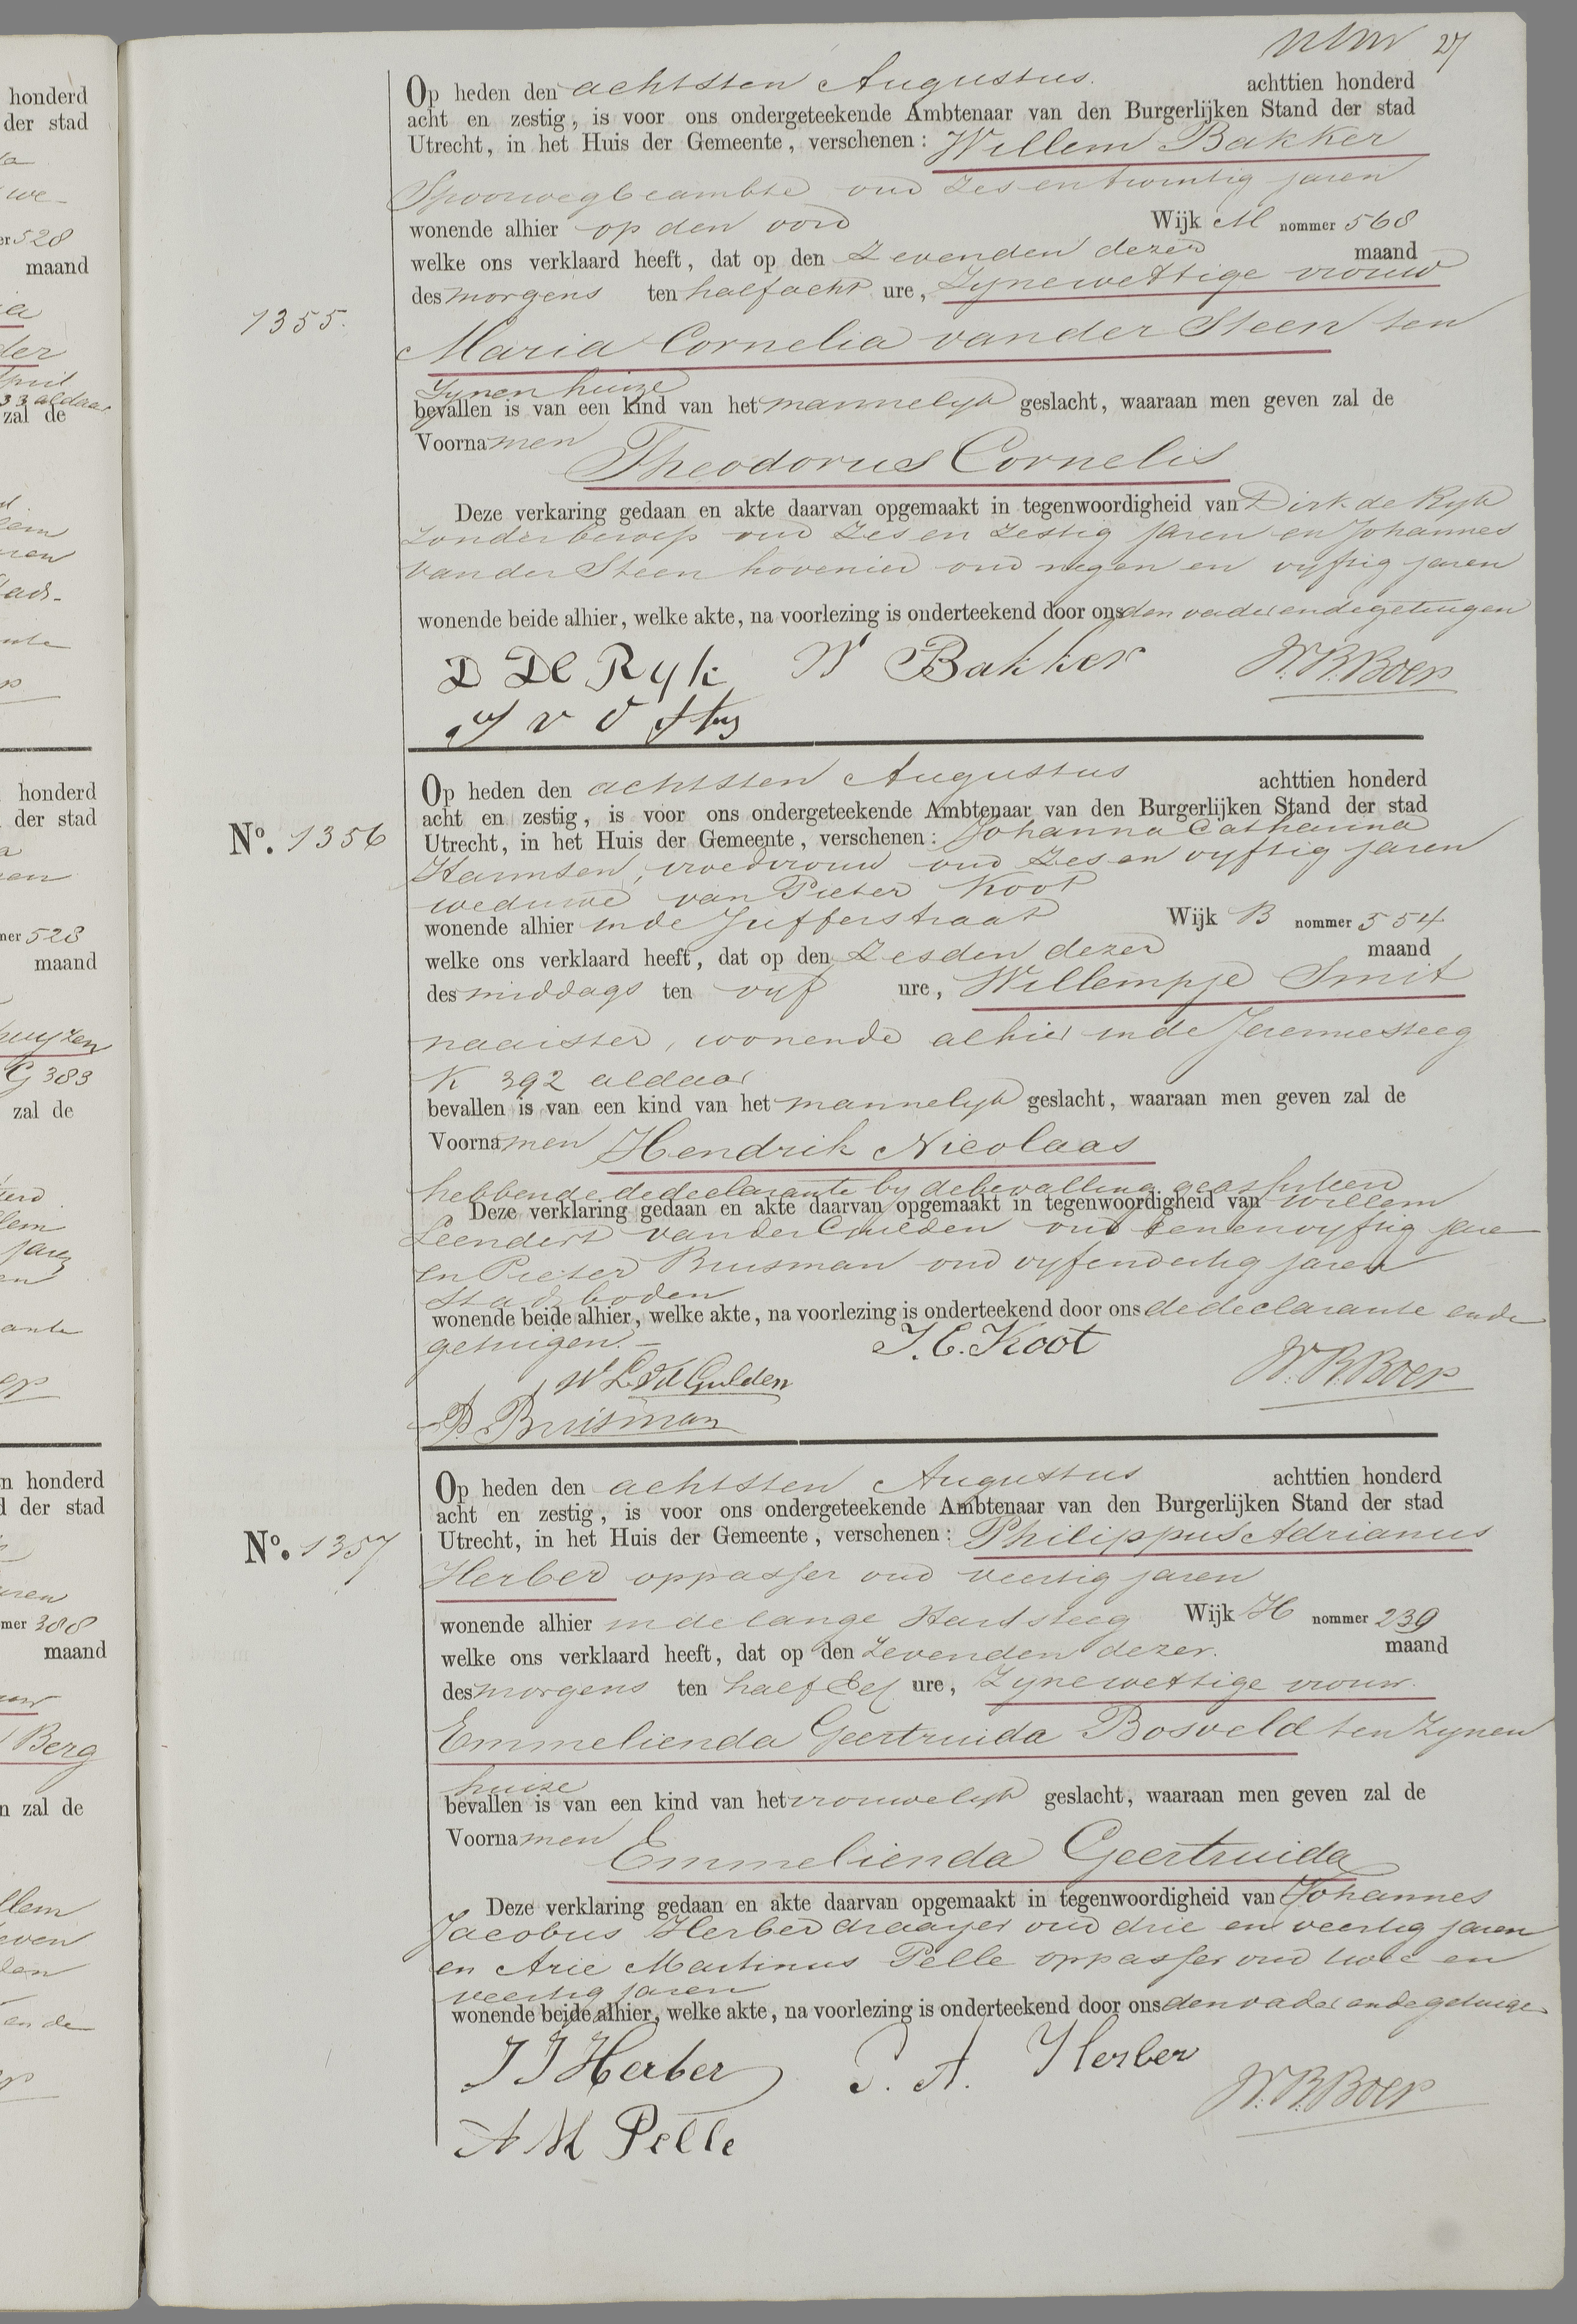 27
Op heden den achtsten Augustus. achttien honderd
acht en zestig, is voor ons ondergeteekende Ambtenaar van den Burgerlijken Stand der stad
Utrecht, in het Huis der Gemeente, verschenen: Willem Bakker
Spoorwegbeambte oud zes en twintig jaren
wonende alhier op den oord Wijk M nommer 568
welke ons verklaard heeft, dat op den zevenden dezer maand
des morgens ten half acht ure, Zyne wettige vrouw
1355.
Maria Cornelia van der Steen ten
Zynen huize
bevallen is van een kind van het mannelyk geslacht, waaraan men geven zal de
Voornamen
Theodorus Cornelis
Deze verkaring gedaan en akte daarvan opgemaakt in tegenwoordigheid van Dirk de Ryk
Zonder beroep oud Zes en Zestig jaren en Johannes
van der Steen hovenier oud negen en vyftig jaren
wonende beide alhier, welke akte, na voorlezing is onderteekend door ons den vader en de getuigen
D De Ryk W Bakker W.B.Boer
J v d
Op heden den achtsten Augustus achttien honderd
acht en zestig, is voor ons ondergeteekende Ambtenaar van den Burgerlijken Stand der stad
No. 1356
Utrecht, in het Huis der Gemeente, verschenen: Johanna Catharina
Harmsen, vroedvrouw oud Zes en vyftig jaren
weduwe van Pieter Koot
wonende alhier in de Jufferstraat Wijk B nommer 554
welke ons verklaard heeft, dat op den Zesden dezer maand
des middags ten vyf ure, Willempje Smit
naaister, wonende alhier in de Jeremiesteeg
K 392 aldaar
bevallen is van een kind van het mannelyk geslacht, waaraan men geven zal de
Voornamen Hendrik Nicolaas
hebbende de declarante by de bevalling geassisteerd
Deze verklaring gedaan en akte daarvan opgemaakt in tegenwoordigheid van Willem
Leendert van der Gulden oud eenenvyftig jare
en Pieter Bruisman oud vyfendertig jaren
Stadsboden
wonende beide alhier, welke akte, na voorlezing is onderteekend door ons de declarante en de
getuigen. J.C. Koot
W L vd Gulden W.B.Boer
P. Bruisman
Op heden den achtsten Augustus achttien honderd
acht en zestig, is voor ons ondergeteekende Ambtenaar van den Burgerlijken Stand der stad
No. 1357
Utrecht, in het Huis der Gemeente, verschenen: Philippus Adrianus
Herber oppasser oud veertig jaren
wonende alhier in de lange Hartsteeg Wijk H nommer 239
welke ons verklaard heeft, dat op den Zevenden dezer. maand
des morgens ten half Elf ure, Zyne wettige vrouw.
Emmelienda Geertruida Bosveld ten Zynen
huize
bevallen is van een kind van het vrouwelyk geslacht, waaraan men geven zal de
Voornamen
Emmelienda Geertruida
Deze verklaring gedaan en akte daarvan opgemaakt in tegenwoordigheid van Johannes
Jacobus Herber draayer oud drie en veertig jaren
en Arie Martinus Pelle oppasser oud twee en
veertig jaren
wonende beide alhier, welke akte, na voorlezing is onderteekend door ons den vader en de getuigen
J J Herber P. A. Herber W.B.Boer
A M Pelle